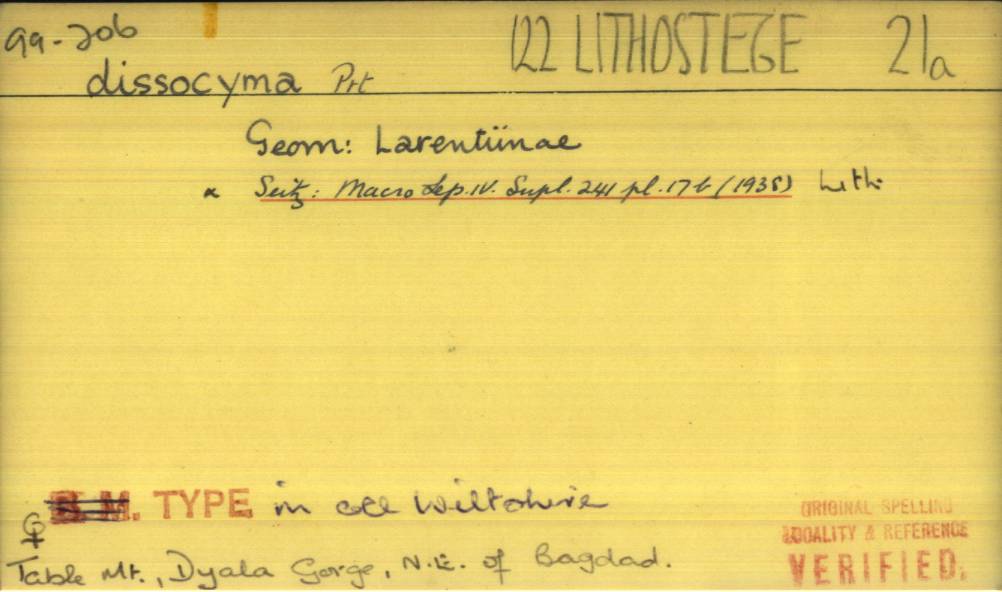 99-206
122 LITHOSTEGE 21a
dissocyma Prt
Geom: Larentiinae
Seitz: Macro Lep. IV. Supl. 241 pl. 17 b (1938) Lith:
B. M. TYPE in coll Wiltshire
♀
Table Mt., Dyala Gorge, N.E. of Bagdad.
ORIGINAL SPELLING
LOCALITY & REFERENCE
VERIFIED.